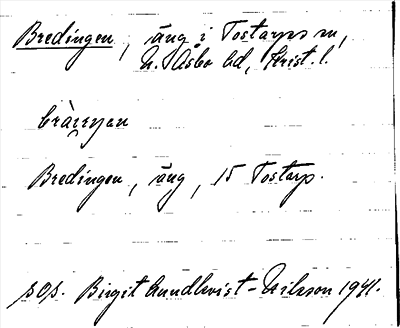 Bredingen, äng i Tostarps sn,
N. Åsbo hd, Krist. l.
Bredingen, äng, 15 Tostarp.
sop. Birgit Lundkvist-Nilsson 1941.